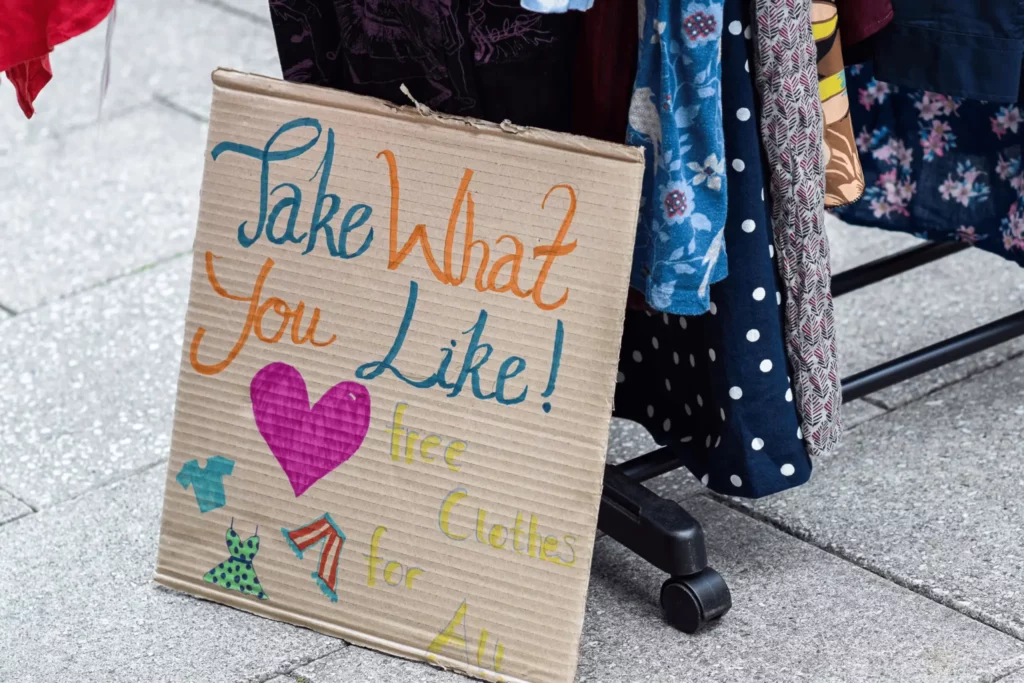 Take What
You Like!
free
Clothes
for
All